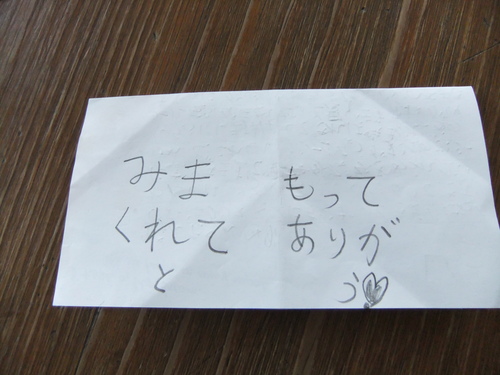 みまもって
くれてありがﾠ
とう